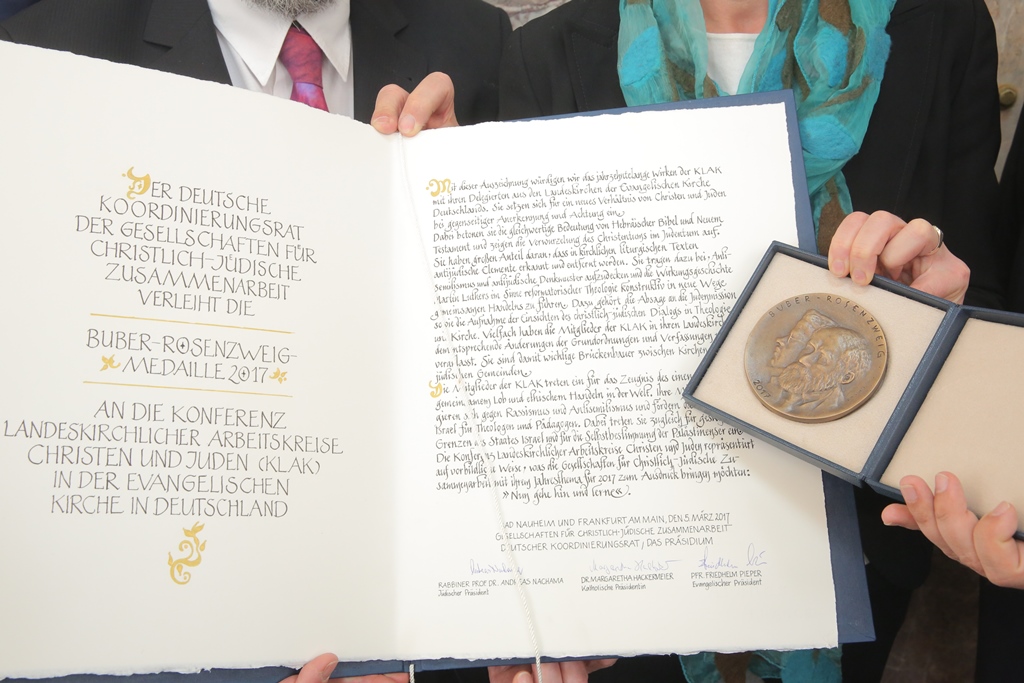 DER DEUTSCHE
KOORDINIERUNGSRAT
DER GESELLSCHAFTEN FÜR
CHRISTLICH-JÜDISCHE
ZUSAMMENARBEIT
VERLEIHT DIE
BUBER-ROSENZWEIG-
MEDAILLE 2017
AN DIE KONFERENZ
LANDESKIRCHLICHER ARBEITSKREISE
CHRISTEN UND JUDEN (KLAK)
IN DER EVANGELISCHEN
KIRCHE IN DEUTSCHLAND
Mit dieser Auszeichnung würdigen wir das jahrzehntelange Wirken der KLAK
mit ihren Delegierten aus den Landeskirchen der Evangelischen Kirche
Deutschlands. Sie setzen sich für ein neues Verhältnis von Christen und Juden
bei gegenseitiger Anerkennung und Achtung ein.
Dabei betonen sie die gleichwertige Bedeutung von Hebräischer Bibel und Neuem
Testament und zeigen die Verwurzelung des Christentums im Judentum auf.
Sie haben großen Anteil daran, dass in kirchlichen liturgischen Texten
antijüdische Elemente erkannt und entfernt worden. Sie tragen dazu bei, Anti-
semitismus und antijüdische Denkmuster aufzudecken und die Wirkungsgeschichte
Martin Luthers im Sinne reformatorischer Theologie konstruktiv in neue Wege
gemeinsamen Handelns zu führen. Dazu gehört die Absage an die Judenmission
sowie die Aufnahme der Einsichten des christlich-jüdischen Dialogs in Theologie
und Kirche. Vielfach haben die Mitglieder der KLAK in ihren Landeskirchen
dementsprechende Änderungen der Grundordnungen und Verfassungen
veranlasst. Sie sind damit wichtige Brückenbauer zwischen Kirchen
jüdischen Gemeinden.
Die Mitglieder der KLAK treten ein für das Zeugnis des einen
gemeinsamem Lob und ethischem Handeln in der Welt. Ihre
gieren sich gegen Rassismus und Antisemitismus und fördern
Israel für Theologen und Pädagogen. Dabei treten sie zugleich für
Grenzen des Staates Israel und für die Selbstbestimmung der Palästinenser ein.
Die Konferenz Landeskirchlicher Arbeitskreise Christen und Juden repräsentiert
auf vorbildliche Weise, was die Gesellschaften für Christlich-Jüdische Zu-
sammenarbeit mit ihrem Jahresthema für 2017 zum Ausdruck bringen möchten:
»Nun gehe hin und lerne«.
BAD NAUHEIM UND FRANKFURT AM MAIN, DEN 5. MÄRZ 2017
GESELLSCHAFTEN FÜR CHRISTLICH-JÜDISCHE ZUSAMMENARBEIT
DEUTSCHER KOORDINIERUNGSRAT, DAS PRÄSIDIUM
RABBINER PROF. DR. ANDREAS NACHAMA
Jüdischer Präsident
DR. MARGARETHA HACKERMEIER
Katholische Präsidentin
PFR. FRIEDHELM PIEPER
Evangelischer Präsident
BUBER-ROSENZWEIG
2017